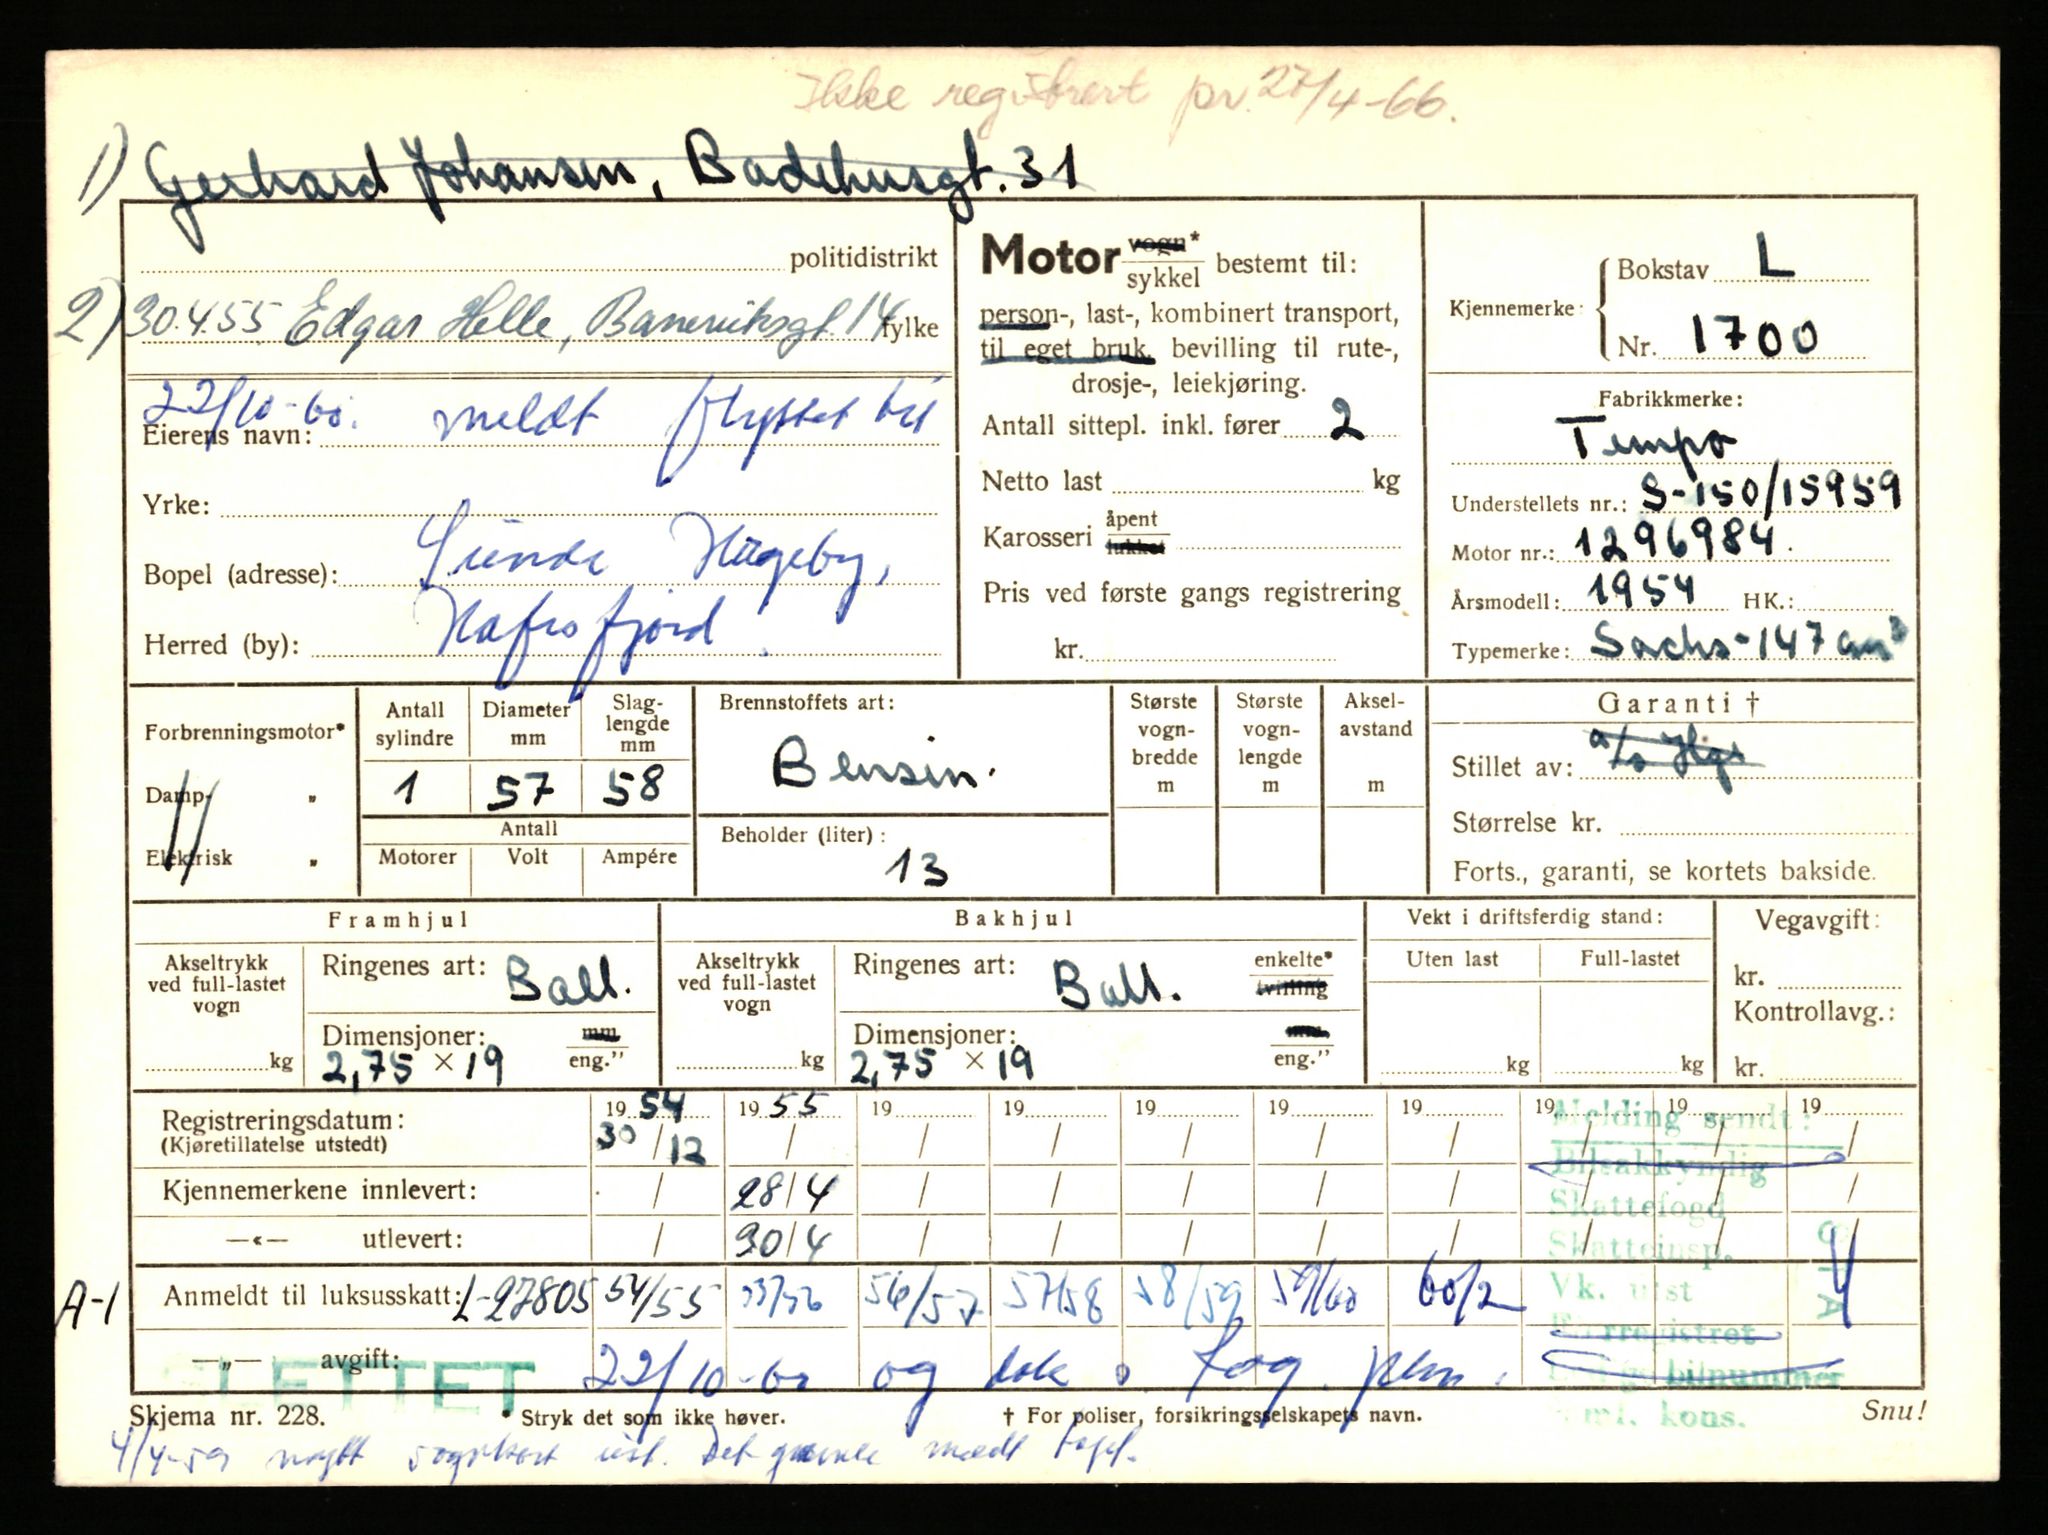 Ikke registrert pr. 27/4-66.
1) Gerhard Johansen, Badehusgt. 31
politidistrikt
2) 30.4.55 Edgar Helle, Baneviksgt. 14 fylke
22/10-60. meldt flyttet til
Eierens navn:
Yrke:
Bopel (adresse): Sunde Hageby,
Herred (by): Hafrsfjord.
Motor vogn*
sykkel bestemt til:
person-, last-, kombinert transport,
til eget bruk, bevilling til rute-,
drosje-, leiekjøring.
Antall sittepl. inkl. fører 2
Netto last kg
Karosseri åpent
lukket
Pris ved første gangs registrering
kr.
Kjennemerke: Bokstav L
Nr. 1700
Fabrikkmerke:
Tempo
Understellets nr.: S-150/15959
Motor nr.: 1296984.
Årsmodell: 1954 HK.:
Typemerke: Sachs-147 cm³
Forbrenningsmotor*
Damp- „
Elektrisk „
Antall sylindre
Diameter mm
Slag-lengde mm
1 57 58
Antall
Motorer Volt Ampére
Brennstoffets art:
Bensin.
Beholder (liter):
13
Største vogn-bredde m
Største vogn-lengde m
Aksel-avstand m
Garanti †
Stillet av: a/s
Størrelse kr.
Forts., garanti, se kortets bakside.
Framhjul
Akseltrykk ved full-lastet vogn
kg
Ringenes art: Ball.
Dimensjoner: mm
2,75 × 19 eng.”
Bakhjul
Akseltrykk ved full-lastet vogn
kg
Ringenes art: Ball. enkelte*
tvilling
Dimensjoner:
2,75 × 19 eng.”
Vekt i driftsferdig stand:
Uten last Full-lastet
kg kg
Vegavgift:
kr.
Kontrollavg.:
kr.
Registreringsdatum: 19 54 19 55 19 19 19 19 19 19 19 19
(Kjøretillatelse utstedt) 30/12 / / / / / / / / /
Kjennemerkene innlevert: / 28/4 / / / / / / / /
—«— utlevert: / 30/4 / / / / / / / /
A-1 Anmeldt til luksusskatt: L-27805 54/55 55/56 56/57 57/58 58/59 59/60 60/2
—„— avgift: 22/10-60 og
SLETTET
Melding sendt:
Bilsakkyndig
Skattefogd
Skatteinsp.
Vk. utst
Førregistret
bilnummer
kons.
Skjema nr. 228.
* Stryk det som ikke høver.
† For poliser, forsikringsselskapets navn.
Snu!
4/4-59 nytt vognkort utst. Det gamle meldt tapt.